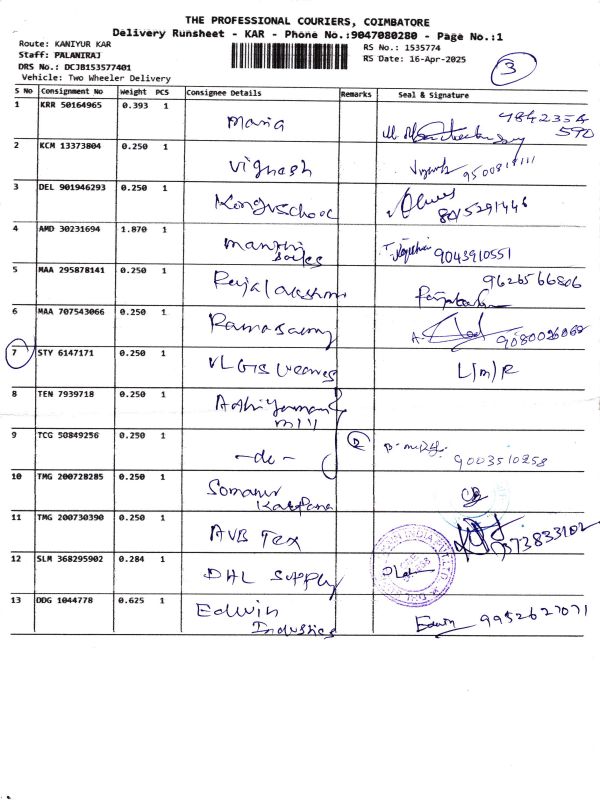 THE PROFESSIONAL COURIERS, COIMBATORE
Delivery Runsheet - KAR - Phone No.:9047080280 - Page No.:1
Route: KANIYUR KAR
Staff: PALANIRAJ
DRS No.: DCJB153577401
Vehicle: Two Wheeler Delivery
RS No.: 1535774
RS Date: 16-Apr-2025
3
S No Consignment No Weight PCS Consignee Details Remarks Seal & Signature
1 KRR 50164965 0.393 1 Maria 9842354
590
2 KCM 13373804 0.250 1 Vignesh
3 DEL 901946293 0.250 1 8015291446
4 AMD 30231694 1.870 1 9043910551
Sales
5 MAA 295878141 0.250 1 Rajalakshmi 9626566806
6 MAA 707543066 0.250 1 Ramasamy
7 STY 6147171 0.250 1 L/m/R
8 TEN 7939718 0.250 1
Mill
9 TCG 50849256 0.250 1 -do- 2 9003510258
10 TMG 200728285 0.250 1 Somanur
Kalpana
11 TMG 200730390 0.250 1 AVB Tex
12 SLM 368295902 0.284 1 DHL Supply
13 DDG 1044778 0.625 1 Edwin Edwin 9952627071
Industries